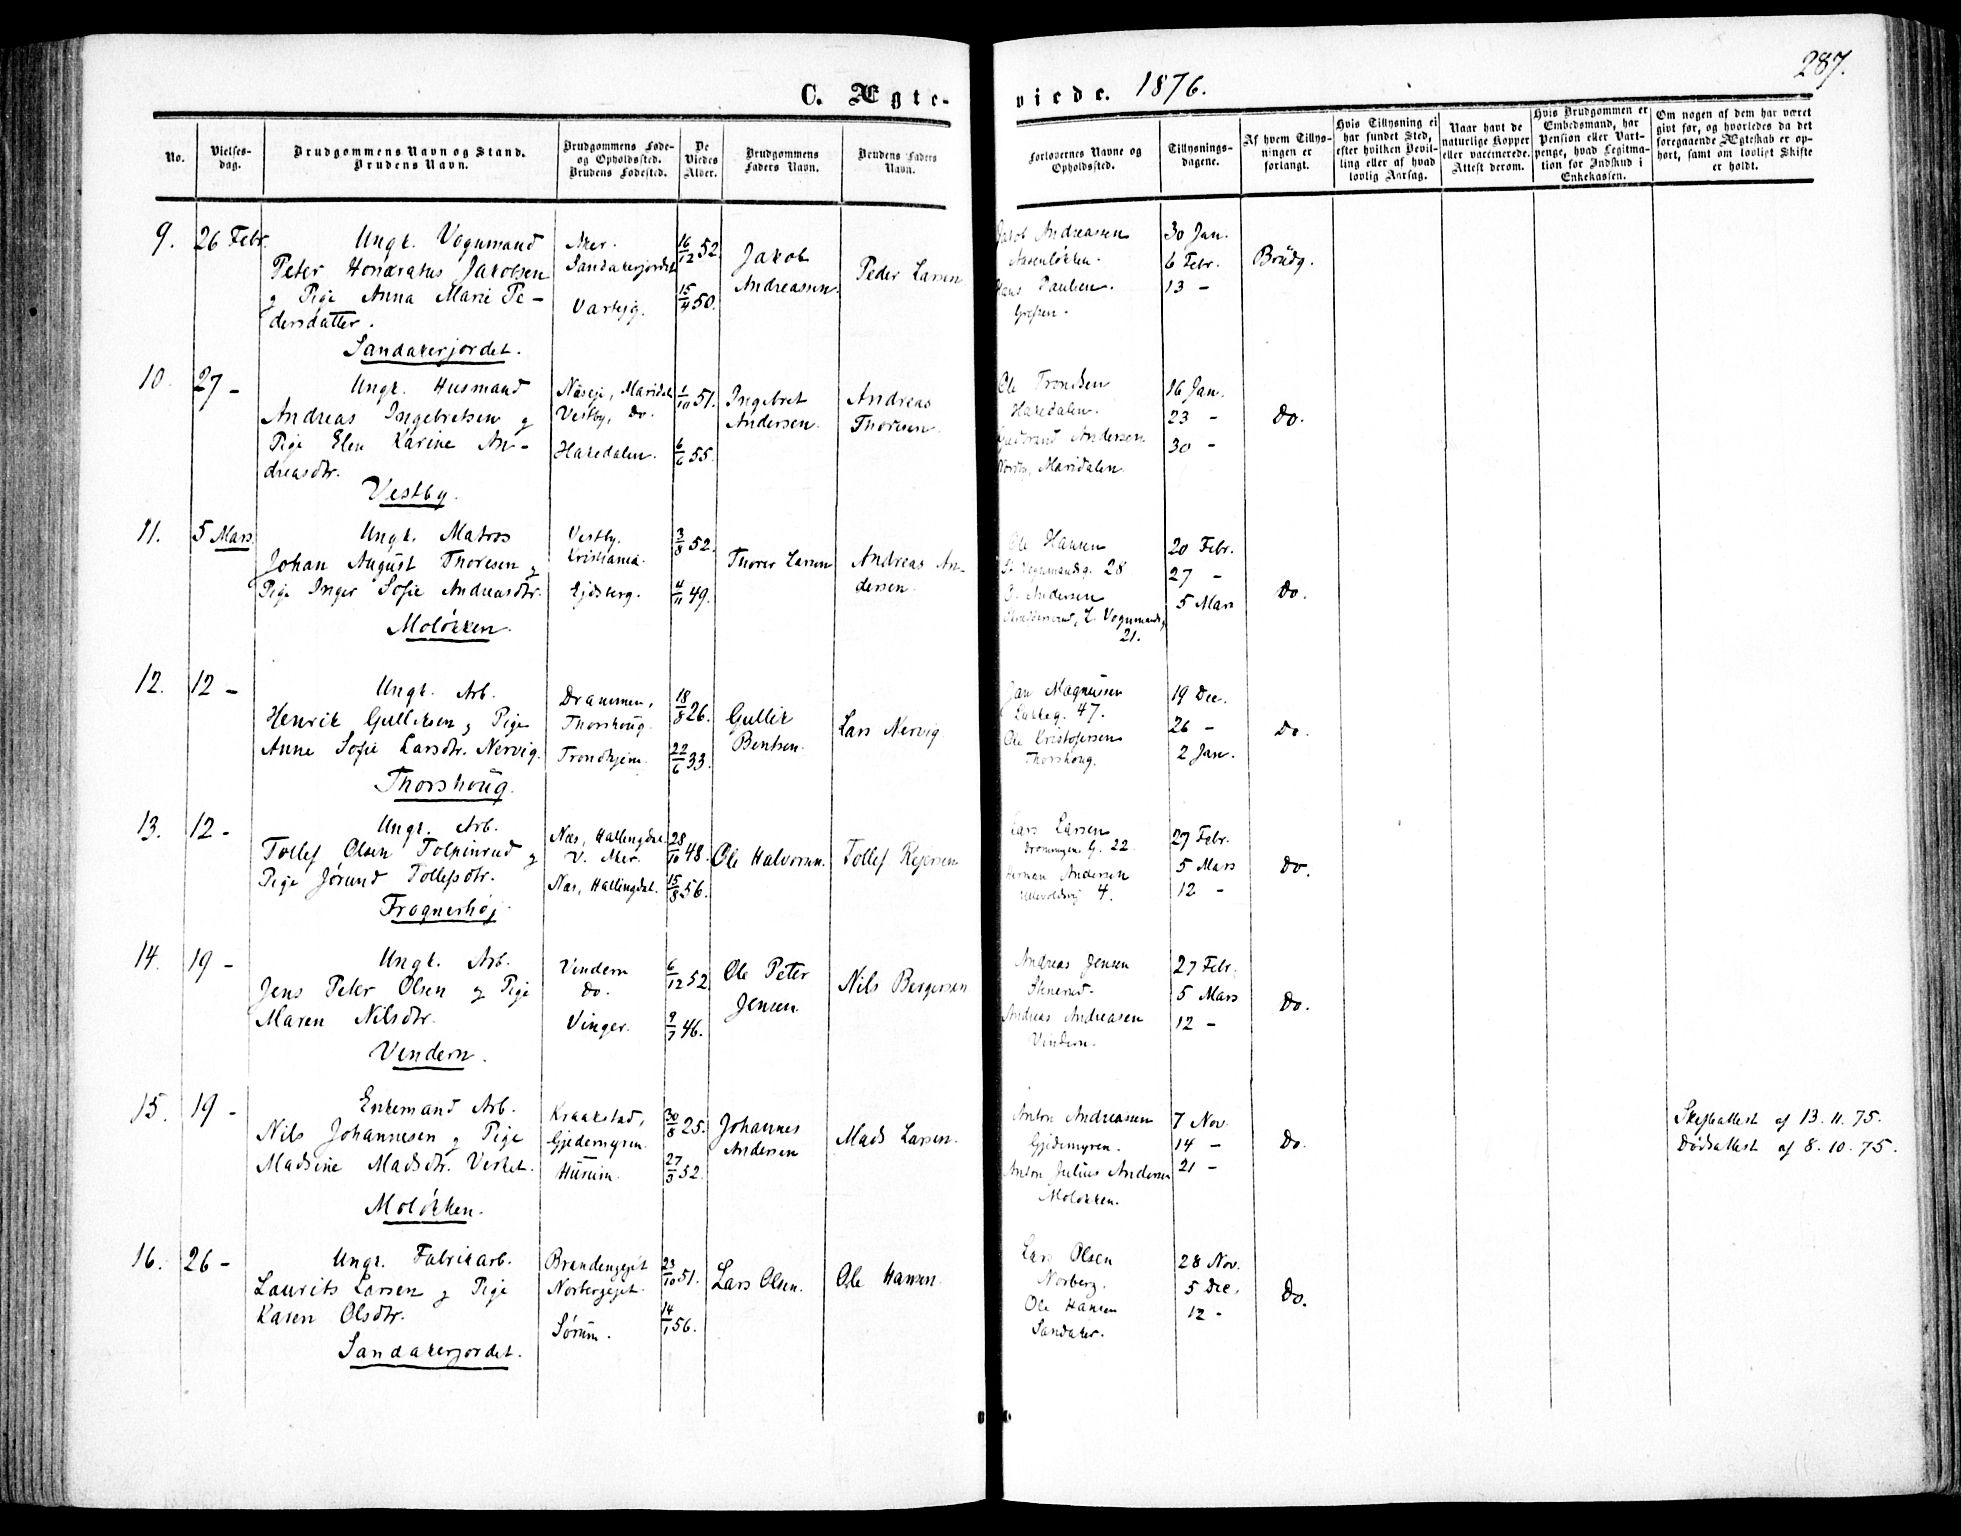 287.
C. Ægteviede. 1876.
No.
Vielsesdag.
Brudgommens Navn og Stand.
Brudens Navn.
Brudgommens Føde-
og Opholdssted.
Brudens Fødested.
De
Viedes
Alder.
Brudgommens
Faders Navn.
Brudens Faders
Navn.
Forlovernes Navne og
Opholdssted.
Tillysnings-
dagene.
Af hvem Tillys-
ningen er
forlangt.
Hvis Tillysning ei
har fundet Sted,
efter hvilken Bevil-
ling eller af hvad
lovlig Aarsag.
Naar havt de
naturlige Kopper
eller vaccinerede.
Attest derom.
Hvis Brudgommen er
Embedsmand, har
Pension eller Vart-
penge, hvad Legitima-
tion for Indskud i
Enkekassen.
Om nogen af dem har været
givt før, og hvorledes da det
foregaaende Ægteskab er op-
hørt, samt om lovligt Skifte
er holdt.
9. 26 Febr.
Ungk. Vognmand
Peter Honoratus Jakobsen
og Pige Anna Marie Pe-
dersdatter.
Sandakerjordet.
Aker.
Sandakerjordet
Vartejg.
16/12 52.
15/4 50.
Jakob
Andreassen.
Peder Larsen
Jakob Andreasen
Aasenløkken.
Hans Paulsen.
Grefsen.
30 Jan.
6 Febr.
13 -
Brudg.
10. 27 -
Ungk. Husmand
Andreas Ingebretsen og
Pige Elen Karine An-
dreasdtr.
Vestby.
Næseje, Maridal
Vestby, do.
Hakedalen.
1/10 51.
6/6 55.
Ingebret
Andersen.
Andreas
Thoresen.
Ole Trondsen
Hakedalen.
Gudbrand Andersen
Maridalen.
16 Jan.
23 -
30 -
Do.
11. 5 Mars
Ungk. Matros
Johan August Thoresen og
Pige Inger Sofie Andreasdtr.
Moløkken.
Vestby.
Kristiania.
Ejdsberg.
3/8 52.
4/11 49.
Thorer Larsen
Andreas An-
dersen.
Ole Hansen
Vognmandsg. 28
Andersen
L. Vognmandsg.
21.
20 Febr.
27 -
5 Mars
Do.
12. 12 -
Ungk. Arb.
Henrik Gulliksen og Pige
Anne Sofie Larsdtr. Nervig.
Thorshoug.
Drammen,
Thorshoug.
Trondhjem.
18/8 26.
22/6 33.
Gullik
Bentsen.
Lars Nervig
Jan Magnussen
Lakkeg. 47.
Ole Kristofersen
Thorshoug.
19 Dec.
26 -
2 Jan.
Do.
13. 12 -
Ungk. Arb.
Tollef Olsen Tolpinrud og
Pige Jørund Tollefsdtr.
Frognerhøj.
Næs, Hallingdal
V. Aker.
Næs, Hallingdal.
28/10 48.
15/8 56.
Ole Halvorsen.
Tollef Rejersen
Lars Larsen
Dronningens G. 22.
Herman Andersen
Ullevoldsvej 4.
27 Febr.
5 Mars
12 -
Do.
14. 19 -
Ungk. Arb.
Jens Peter Olsen og Pige
Maren Nilsdtr.
Vindern.
Vindern
do.
Vinger.
6/12 52.
9/7 46.
Ole Peter
Jensen.
Nils Bergersen
Andreas Jensen
Andreas Andreasen
Vindern.
27 Febr.
5 Mars
12 -
Do.
15. 19 -
Enkemand Arb.
Nils Johannesen og Pige
Madsine Madsdtr. Verket.
Moløkken.
Kraakstad,
Gjedemyren.
Hurum.
30/8 25.
27/3 52.
Johannes
Andersen
Mads Larsen.
Anton Andreasen
Gjedemyren.
Anton Julius Andersen
Moløkken.
7 Nov.
14 -
21 -
Do.
Skifteattest af 13.11.75.
Dødsattest af 8.10.75.
16. 26 -
Ungk. Fabrikarb.
Laurits Larsen og Pige
Karen Olsdtr.
Sandakerjordet.
Brandengejet
Norbergejet.
Sørum.
23/10 51.
14/1 56.
Lars Olsen.
Ole Hansen.
Lars Olsen
Norberg.
Ole Hansen
Sandaker.
28 Nov.
5 Dec.
12 -
Do.